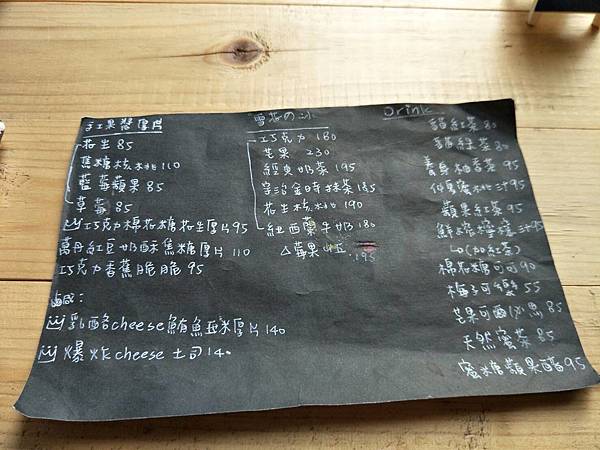 手工果醬厚片
花生 85
焦糖核桃 110
藍莓蘋果 85
草莓 85
巧克力棉花糖花生厚片 95
萬丹紅豆奶酥焦糖厚片 110
巧克力香蕉脆脆 95
鹹:
乳酪cheese鮪魚玉米厚片 140
爆炸cheese土司 140
雪花の冰
巧克力 180
芒果 230
經典奶茶 195
宇治金時抹茶 185
花生核桃 190
紐西蘭牛奶 180
195
Drink
紅茶 80
綠茶 80
養身柚香茶 95
95
蘋果紅茶 95
鮮 檸檬汁 95
(加紅茶)
棉花糖可可 90
梅子可樂 55
芒果可爾必思 85
天然蜜茶 85
蜜糖蘋果醋 95